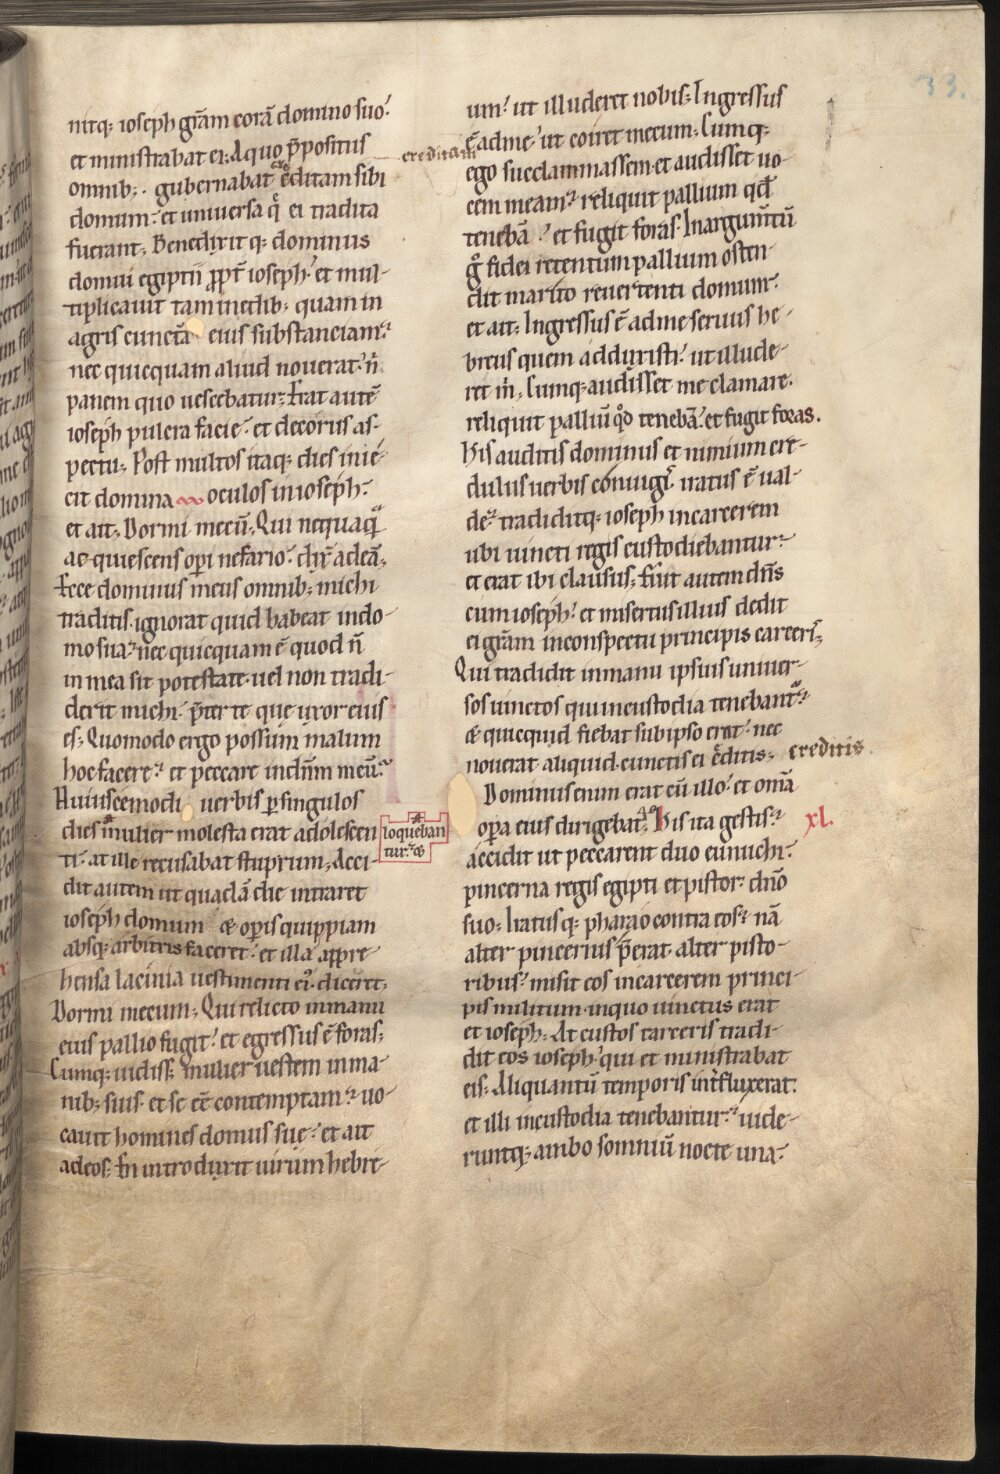 33.
nitq; ioseph grãm corã domino suo:
et ministrabat ei; A quo p̃positus
omnib; gubernabat c̃ditam sibi
creditam
domum: et universa q̃ ei tradita
fuerant; Benedixit q; dominus
domui egiptii ꝓpt̃ ioseph: et mul-
tiplicavit tam in edib; quam in
agris cunctã eius substanciam:
nec quicquam aliud noverat: ñ
panem quo vescebatur; Erat autẽ
ioseph pulcra facie: et decorus as-
pectu; Post multos itaq; dies inie-
cit domina oculos in ioseph:
et ait; Dormi mecũ; Qui nequaq̃
ac quiescens oꝑi nefario: dix̃ ad eã;
Ecce dominus meus omnib; michi
traditis ignorat quid habeat in do-
mo sua: nec quicquam ẽ quod ñ
in mea sit potestate vel non tradi-
derit michi: p̃ter te que uxor eius
es; Quomodo ergo possum malum
hoc facere: et peccare in dñm meũ:
Huiuscemodi verbis ꝑ singulos
dies mulier molesta erat adolescen
loqueban
tur
ti: at ille recusabat stuprum; Acci-
dit autem ut quadã die intraret
ioseph domum & oꝑis quippiam
absq; arbitris faceret: et illa appre
hensa lacinia vestimenti ei᾽ diceret;
Dormi mecum; Qui relicto in manu
eius pallio fugit: et egressus ẽ foras;
Cumq; vidiss; mulier vestem in ma-
nib; suis et se eẽ contemptam: vo-
cavit homines domus sue: et ait
ad eos; En introduxit virum hebre-
um: ut illuderet nobis; Ingressus
ẽ ad me: ut coiret mecum; Cumq;
ego succlammassem et audisset vo-
cem meam: reliquit pallium qđ
tenebã: et fugit foras. In argum̃tũ
g̊ fidei retentum pallium osten-
dit marito revertenti domum:
et ait; Ingressus ẽ ad me servus he-
breus quem adduxisti: ut illude-
ret m̃; Cumq; audisset me clamare.
reliquit palliũ q̊d tenebã: et fugit foras.
His auditis dominus et nimium cre-
dulus verbis coniugĩ iratus ẽ val-
de: tradiditq; ioseph in carcerem
ubi vincti regis custodiebantur:
et erat ibi clausus; Fuit autem dñs
cum ioseph: et misertus illius dedit
ei grãm in conspectu principis carceri̾;
Qui tradidit in manu ipsius univer-
sos vinctos qui in custodia tenebant̃:
& quicquid fiebat sub ipso erat: nec
noverat aliquid cunctis ei c̃ditis;
creditis
Dominus enim erat cũ illo: et omã
oꝑa eius dirigebat; His ita gestis:
xl.
accidit ut peccarent duo eunuchi:
pincerna regis egipti et pistor: dño
suo; Iratusq; pharao contra eos: nã
alter pincernis p̃erat: alter pisto-
ribus: misit eos in carcerem princi-
pis militum: in quo vinctus erat
et ioseph; At custos carceris tradi-
dit eos ioseph: qui et ministrabat
eis; Aliquantũ temporis int̃fluxerat:
et illi in custodia tenebantur: vide-
runtq; ambo somniũ nocte una: